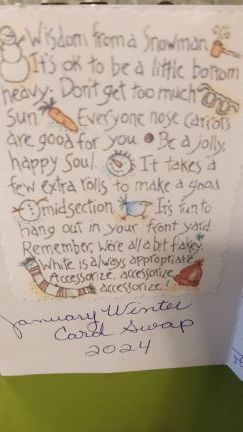 Wisdom from a Snowman
It's ok to be a little bottom
heavy. Don't get too much
sun Everyone nose carrots
are good for you Be a jolly,
happy soul. It takes a
few extra rolls to make a good
midsection It's fun to
hang out in your front yard
Remember, We're all a bit flakey.
White is always appropriate.
Accessorize, accessorize,
accessorize!
January Winter
Card Swap
2024